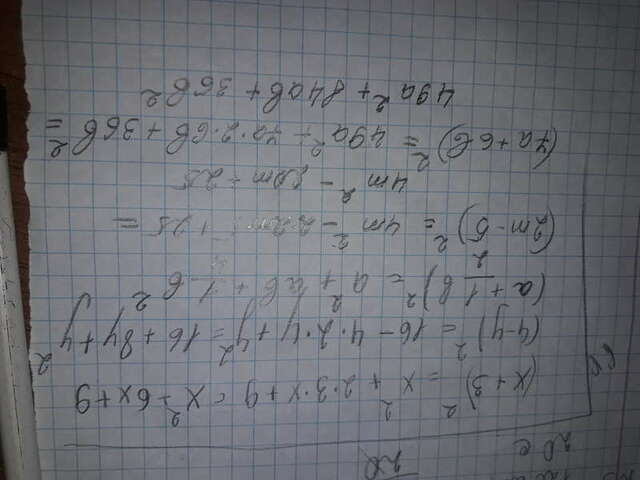 20
20 с
(x+3)² = x² + 2·3·x + 9 = x² + 6x + 9
(4-y)² = 16 - 4·2·y + y² = 16 + 8y + y²
(a + 1/2 b)² = a² + ab + 1 b²
(2m-5)² = 4m² - + 25 =
4m² - 20m + 25
(7a+6b)² = 49a² + 7a·2·6b + 36b² =
49a² + 84ab + 36b²